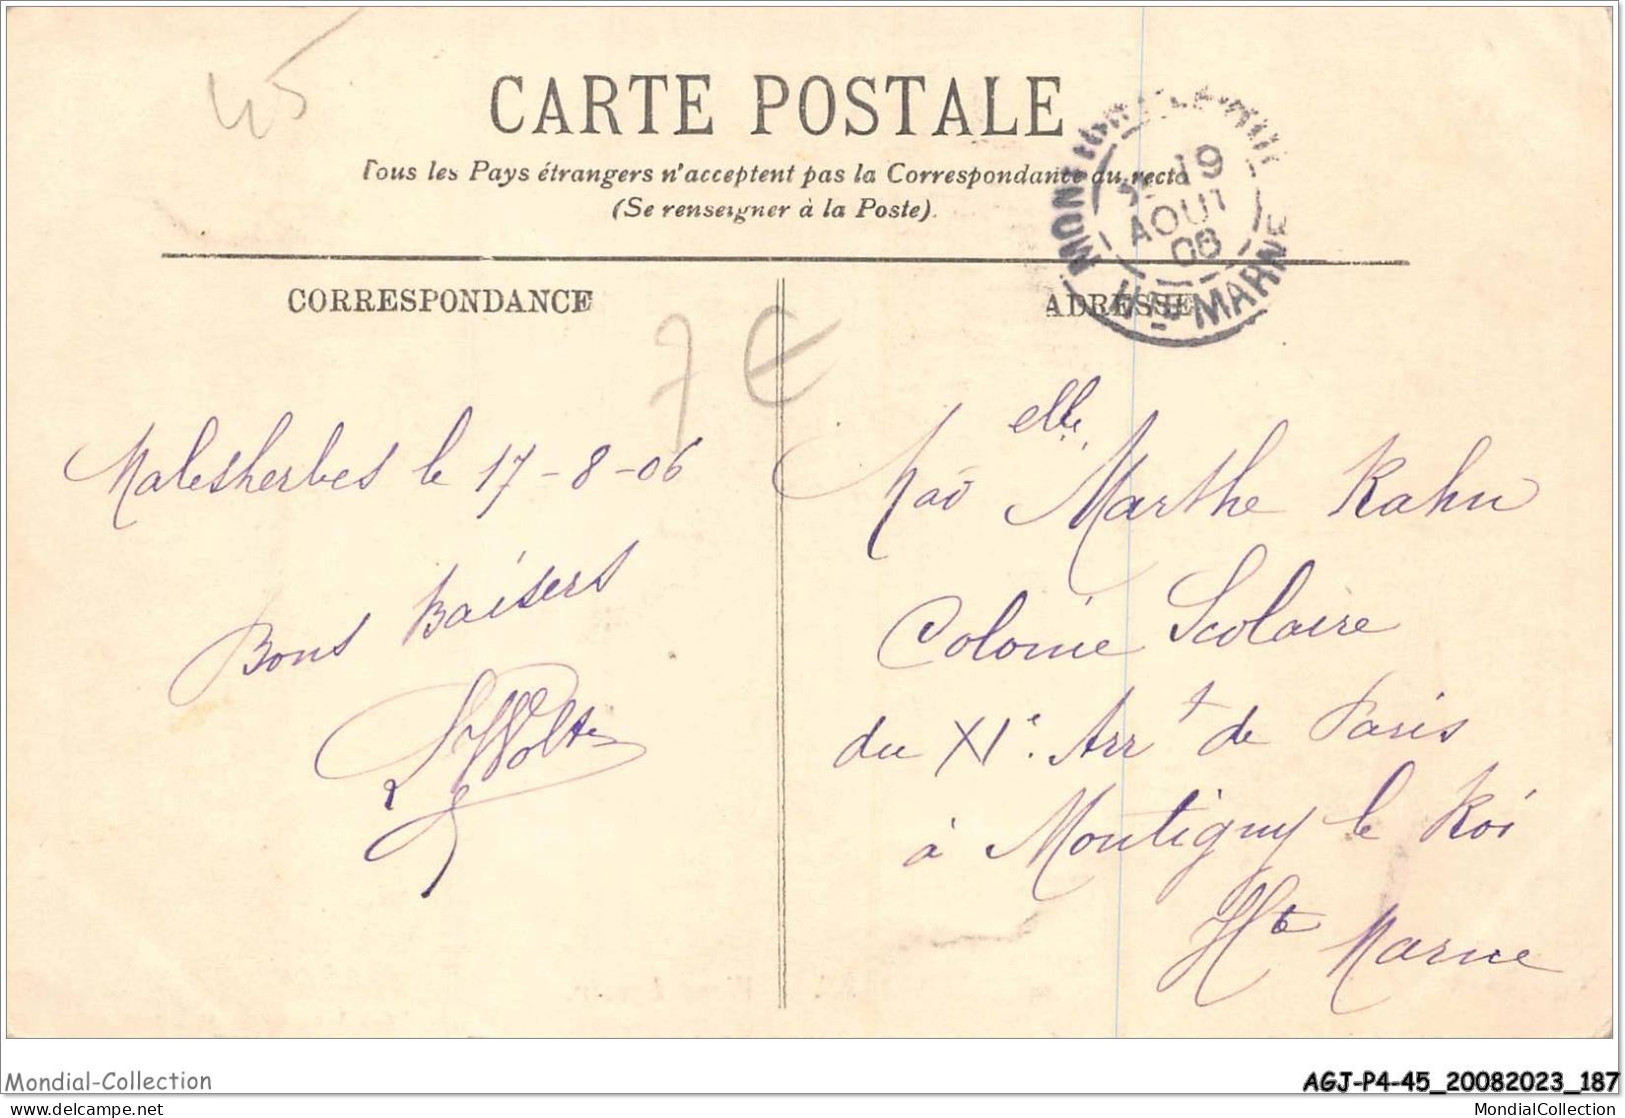 45
CARTE POSTALE
Tous les Pays étrangers n'acceptent pas la Correspondance au recto
(Se renseigner à la Poste).
19
AOUT
06
HTE MARNE
CORRESPONDANCE
ADRESSE
7 €
Malesherbes le 17-8-06
Bons Baisers
Mad elle Marthe Kahn
Colonie Scolaire
du XIe. Arrt de Paris
à Montigny le Roi
Hte Marne
Mondial-Collection
AGJ-P4-45_20082023_187
delcampe.net
MondialCollection